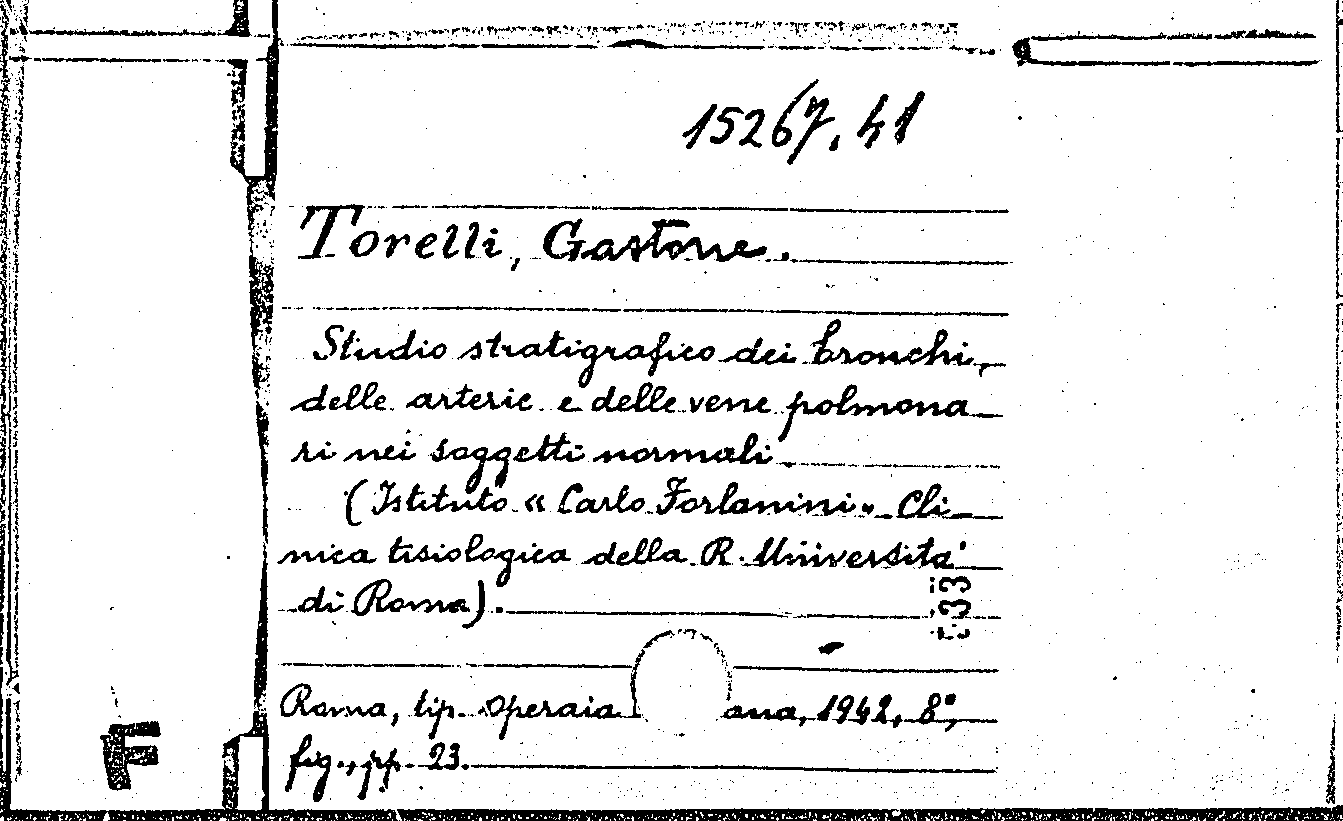 15267.41
Torelli, Gastone.
Studio stratigrafico dei bronchi,
delle arterie e delle vene polmona
ri nei soggetti normali
(Istituto « Carlo Forlanini» Cli
nica tisiologica della R. Università
di Roma).
Roma, tip. operaia ana, 1942, 8°,
fig., pp. 23.
F